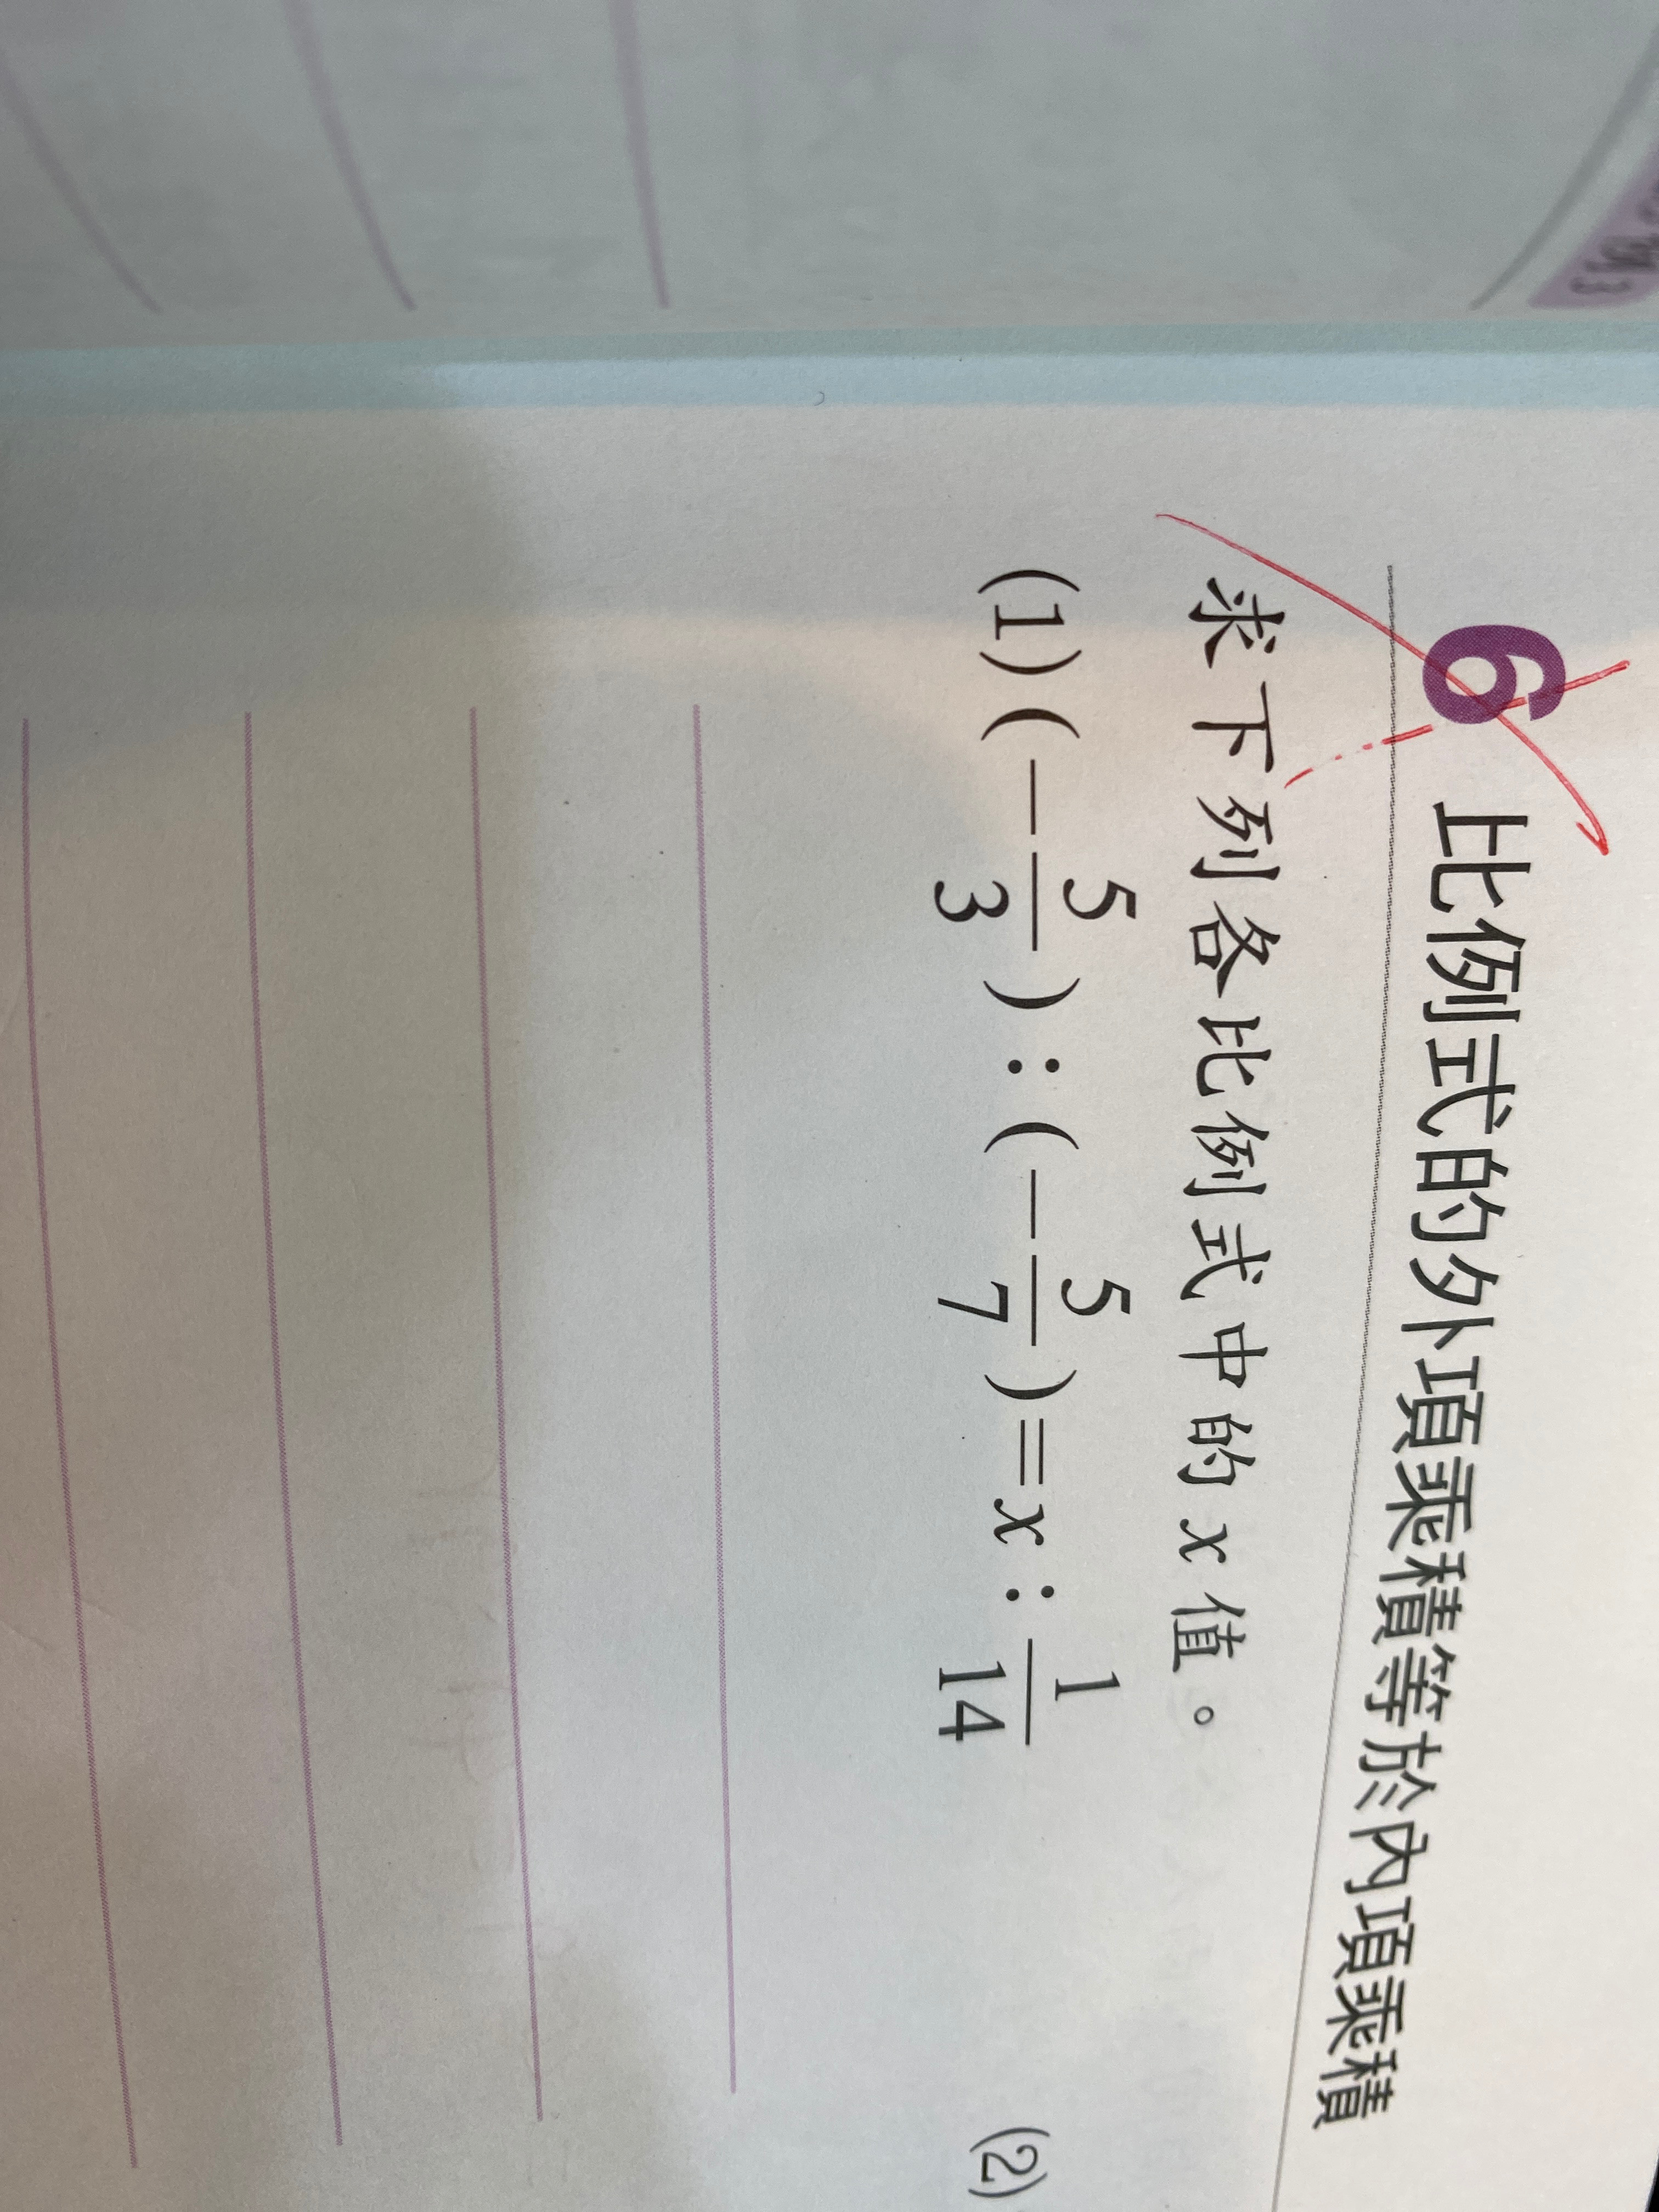 6 比例式的外項乘積等於內項乘積
求下列各比例式中的 x 值。
(1) (-5/3) : (-5/7) = x : 1/14
(2)